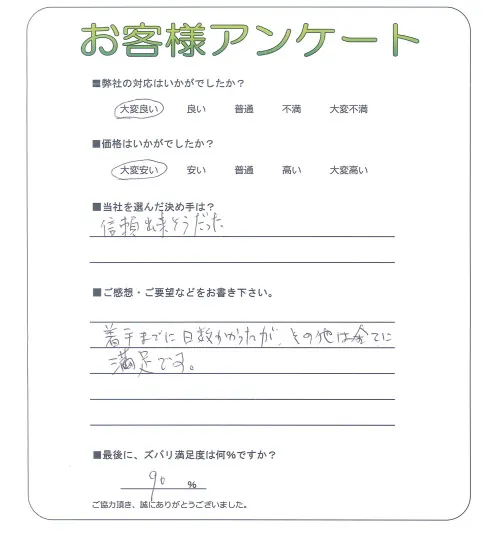 お客様アンケート
■弊社の対応はいかがでしたか?
大変良い 良い 普通 不満 大変不満
■価格はいかがでしたか?
大変安い 安い 普通 高い 大変高い
■当社を選んだ決め手は?
信頼出来そうだった
■ご感想・ご要望などをお書き下さい。
着手までに日数かかったが、その他は全てに
満足です。
■最後に、ズバリ満足度は何%ですか?
90 %
ご協力頂き、誠にありがとうございました。